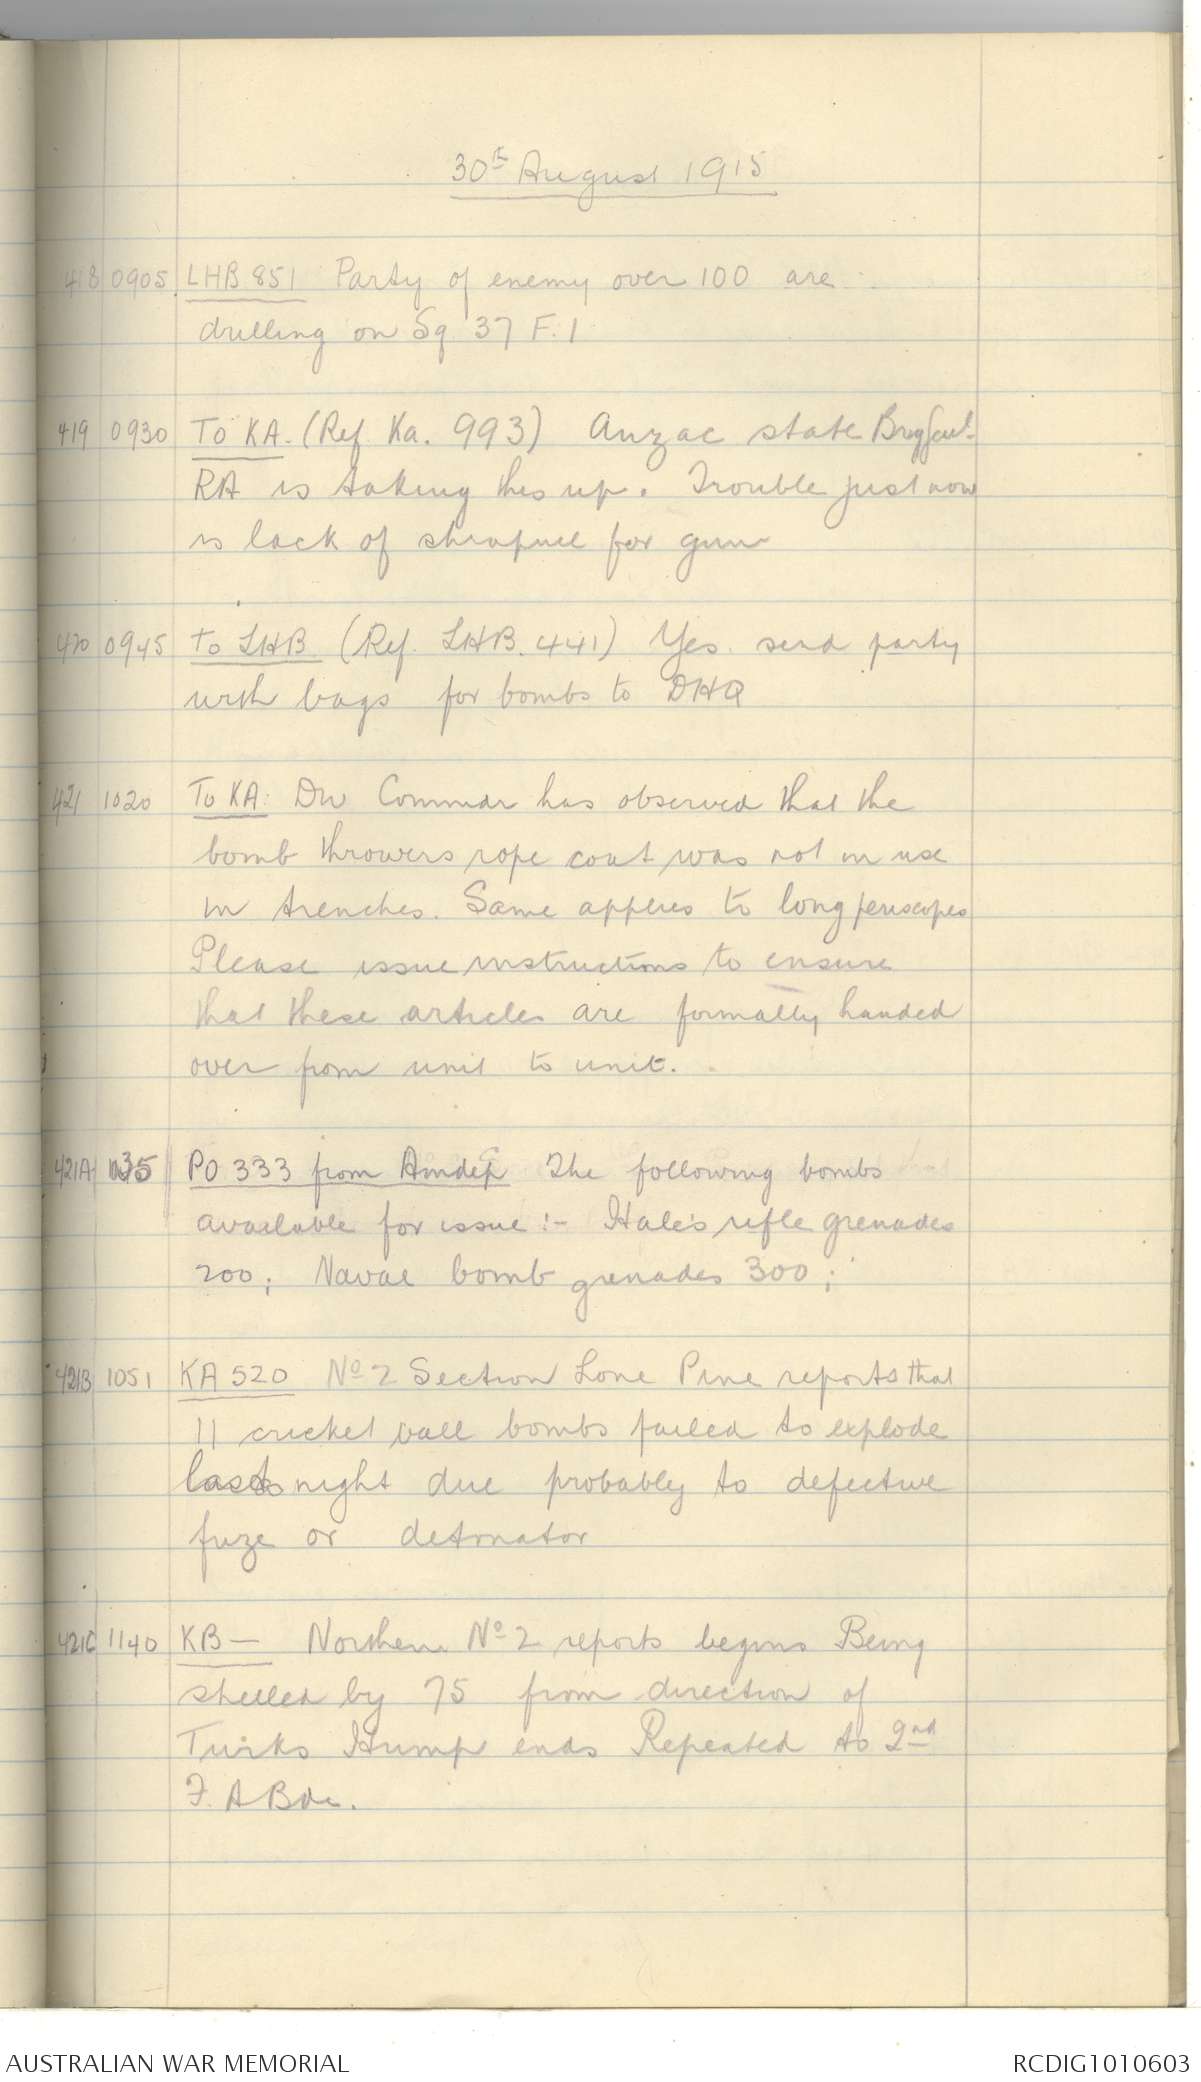 30th August 1915
418 0905 LHB 851 Party of enemy over 100 are
drilling on Sq. 37 F.1
419 0930 To KA. (Ref. Ka. 993) Anzac state BrigGenl
RA is taking this up. Trouble just now
is lack of shrapnel for gun
420 0945 To LHB (Ref. LHB. 441) Yes. send party
with bags for bombs to DHQ
421 1020 To KA: Div Commdr has observed that the
bomb throwers rope coat was not in use
in trenches. Same applies to long periscopes
Please issue instructions to ensure
that these articles are formally handed
over from unit to unit.
421A 1035 PO 333 from Amdep The following bombs
available for issue :- Hale's rifle grenades
200; Naval bomb grenades 300;
421B 1051 KA 520 No 2 Section Lone Pine reports that
11 cricket ball bombs failed to explode
last night due probably to defective
fuze or detonator
421C 1140 KB — Northern No 2 reports begins Being
shelled by 75 from direction of
Turks Hump ends Repeated to 2nd
F. A Bde.
AUSTRALIAN WAR MEMORIAL
RCDIG1010603